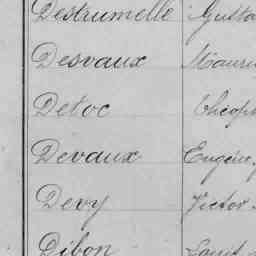 Destrumelle Gusta
Desvaux Mauri
Detoc Théoph
Devaux Eugène
Devy Victor
Dibon Louis